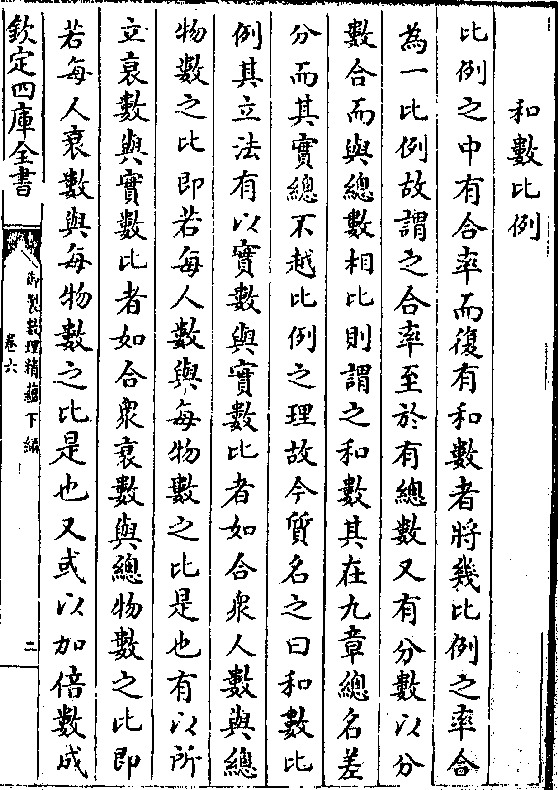 和數比例
比例之中有合率而復有和數者將幾比例之率合
為一比例故謂之合率至於有總數又有分數以分
數合而與總數相比則謂之和數其在九章總名差
分而其實總不越比例之理故今質名之曰和數比
例其立法有以實數與實數比者如合衆人數與總
物數之比即若每人數與每物數之比是也有以所
立衰數與實數比者如合衆衰數與總物數之比即
若每人衰數與每物數之比是也又或以加倍數成
欽定四庫全書
御製數理精蘊下編
卷六
二